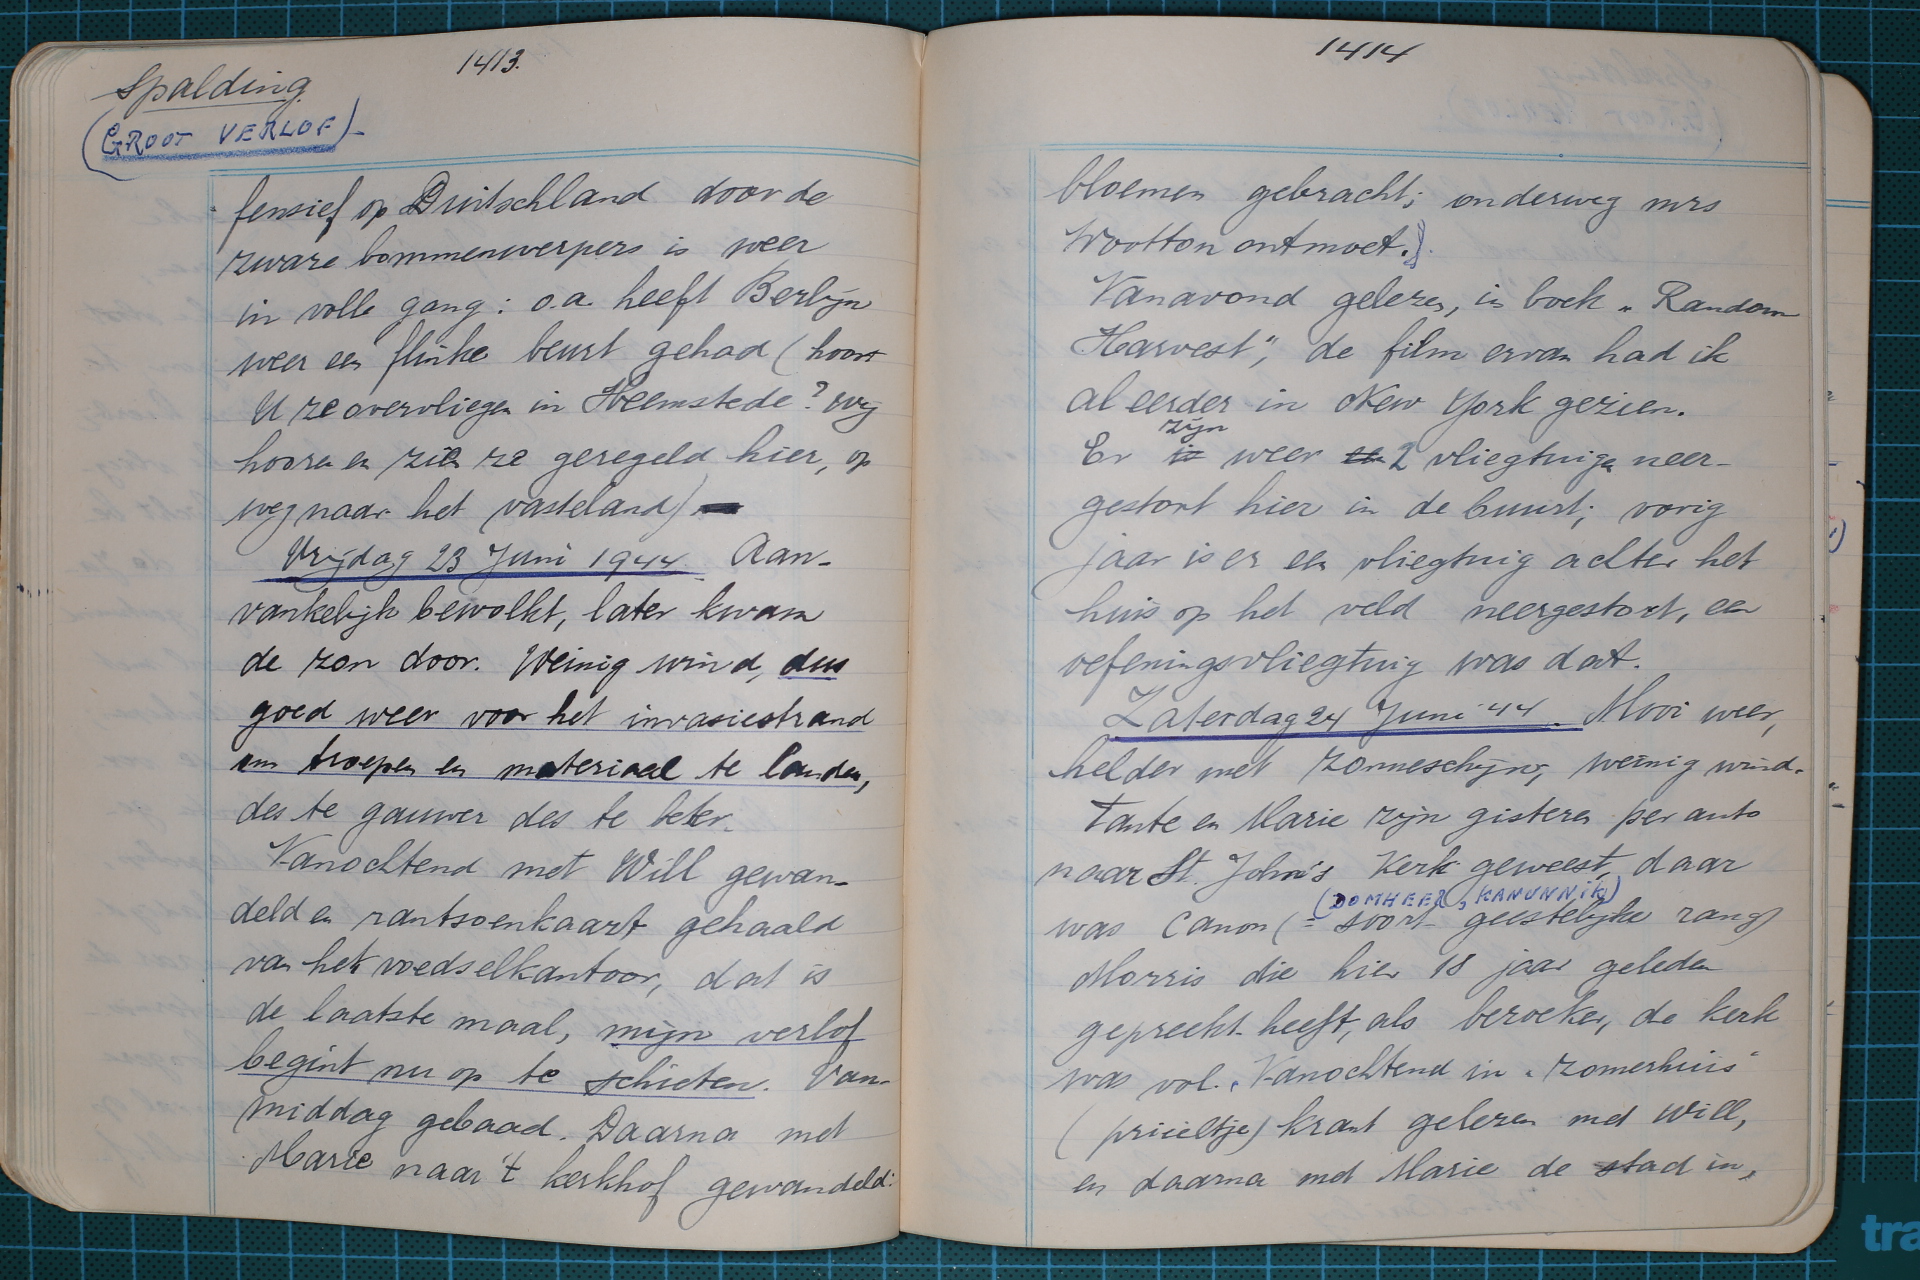 1413.
Spalding
(GROOT VERLOF)
fensief op Duitschland door de
zware bommenwerpers is weer
in volle gang: o.a. heeft Berlijn
weer een flinke beurt gehad (hoort
U ze overvliegen in Heemstede? wij
hooren en zien ze geregeld hier, op
weg naar het vasteland)
Vrijdag 23 Juni 1944. Aan-
vankelijk bewolkt, later kwam
de zon door. Weinig wind, dus
goed weer voor het invasiestrand
om troepen en materiaal te landen,
des te gauwer des te beter.
Vanochtend met Will gewan-
deld en rantsoenkaart gehaald
van het voedselkantoor, dat is
de laatste maal, mijn verlof
begint nu op te schieten. Van-
middag gebaad. Daarna met
Marie naar 't kerkhof gewandeld:
1414
bloemen gebracht; onderweg mrs
Wootton ontmoet.)
Vanavond gelezen, in boek „Random
Harvest", de film ervan had ik
al eerder in New York gezien.
zijn
Er is weer een 2 vliegtuigen neer-
gestort hier in de buurt; vorig
jaar is er een vliegtuig achter het
huis op het veld neergestort, een
oefeningsvliegtuig was dat.
Zaterdag 24 Juni '44. Mooi weer,
helder met zonneschijn, weinig wind.
Tante en Marie zijn gisteren per auto
naar St. John's Kerk geweest, daar
(DOMHEER, KANUNNIK)
was Canon (= soort geestelijke rang)
Morris die hier 18 jaar geleden
gepreekt heeft, als bezoeker, de kerk
was vol. Vanochtend in „zomerhuis"
(prieeltje) krant gelezen met Will,
en daarna met Marie de stad in,
tra